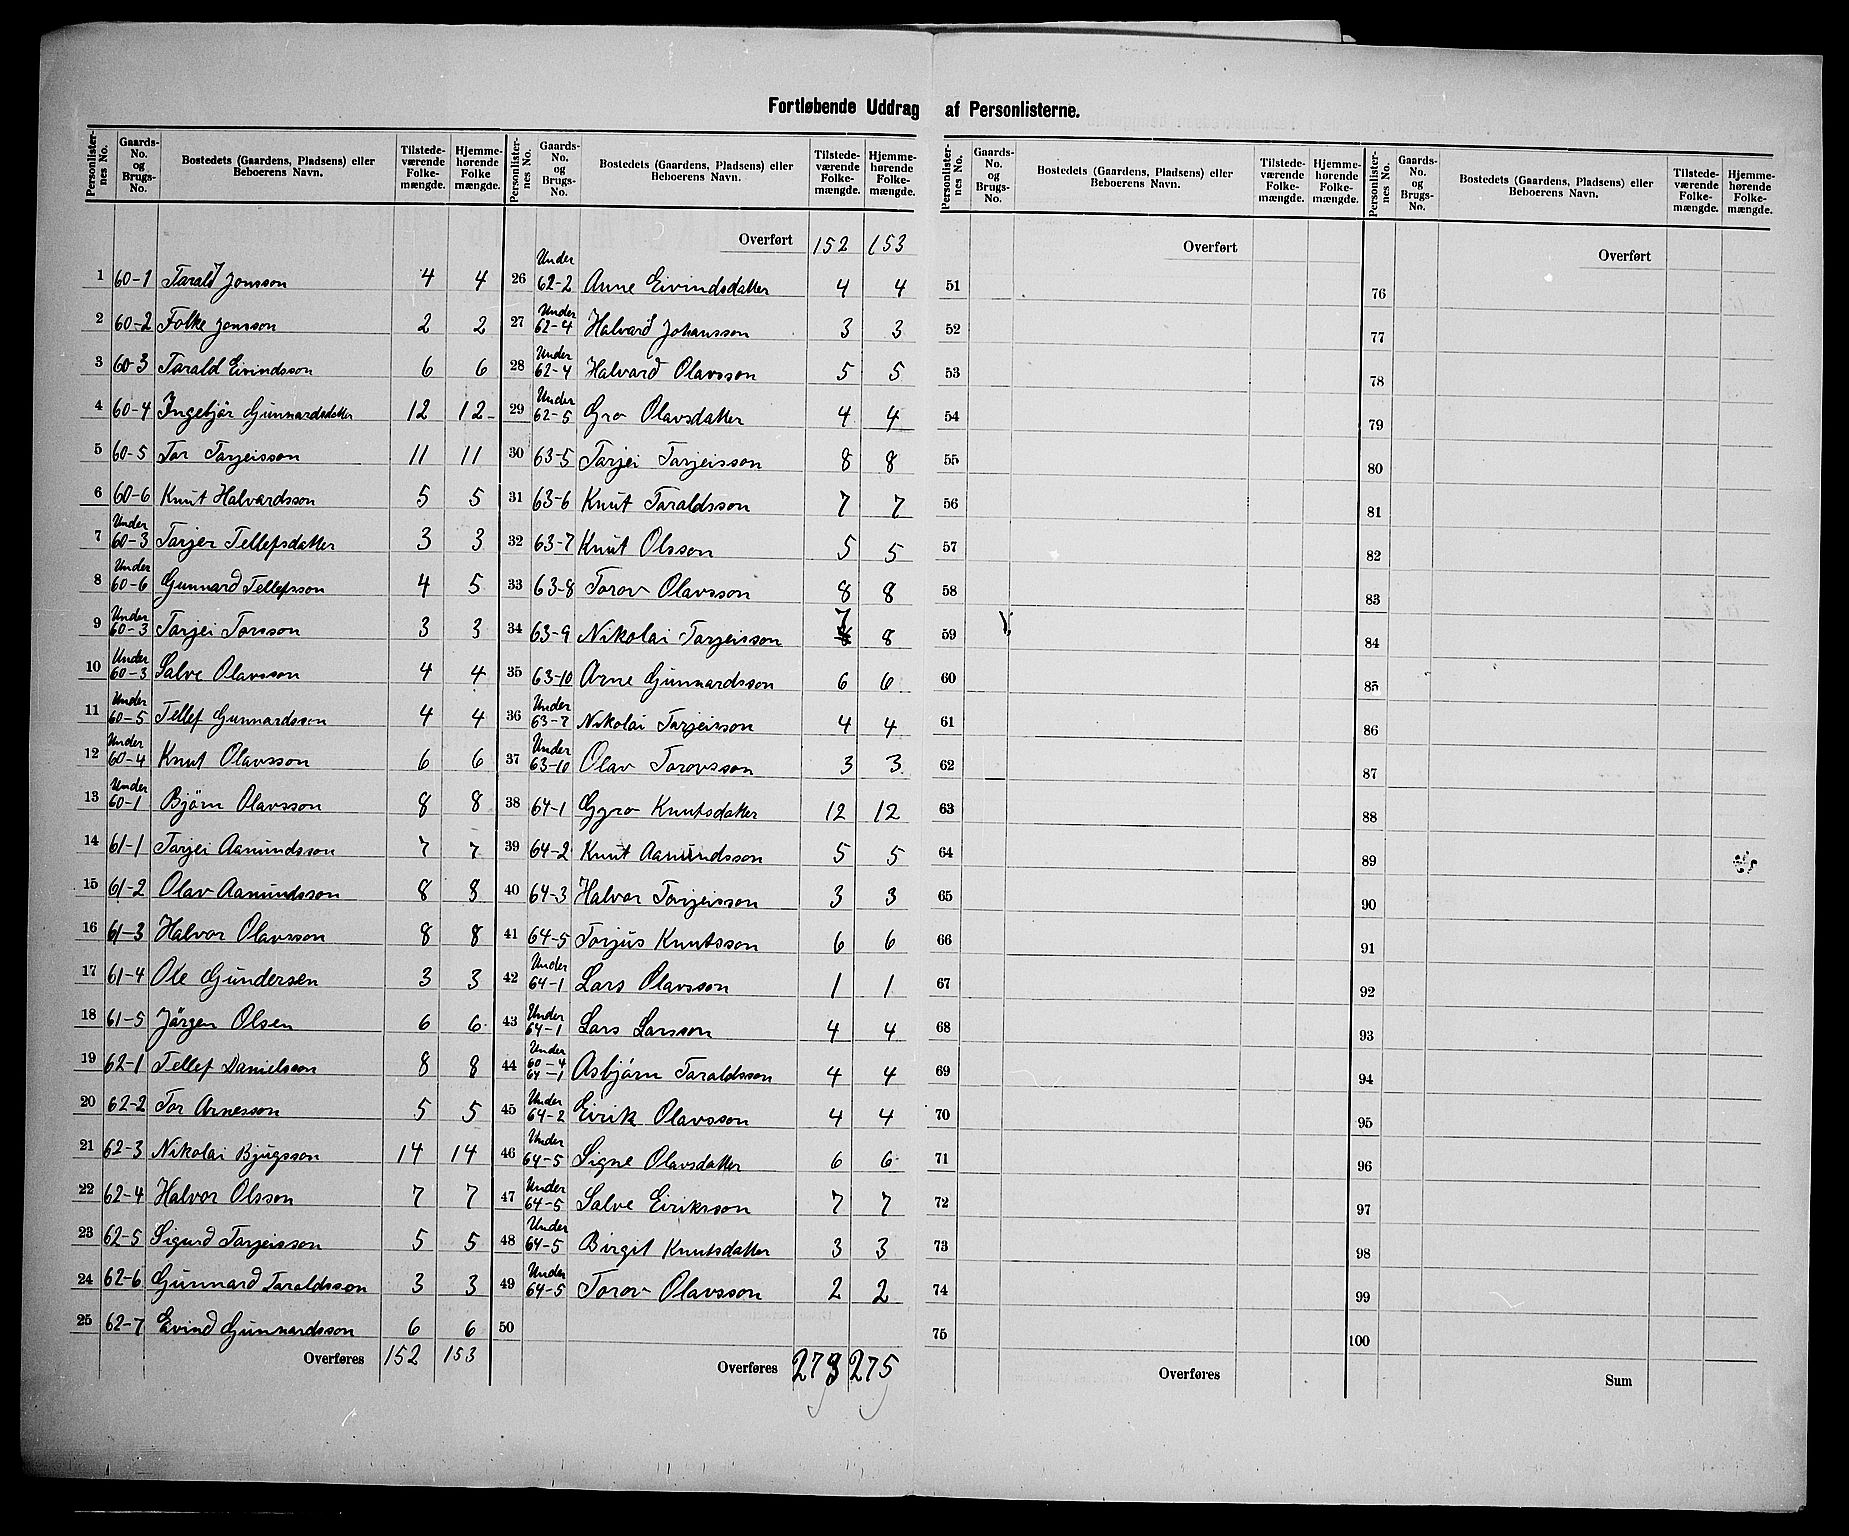 Fortløbende Uddrag af Personlisterne.
Personlister-nes No. Gaards-No. og Brugs-No. Bostedets (Gaardens, Pladsens) eller Beboerens Navn. Tilstede-værende Folke-mængde. Hjemme-hørende Folke mængde.
1 60-1 Tarald Jonsson 4 4
2 60-2 Folke Jonsson 2 2
3 60-3 Tarald Eivindsson 6 6
4 60-4 Ingebjör Gunnardsdatter 12 12
5 60-5 Tor Tarjeisson 11 11
6 60-6 Knut Halvardsson 5 5
7 Under 60-3 Tarjer Tellefsdatter 3 3
8 Under 60-6 Gunnard Tellefsson 4 5
9 Under 60-3 Tarjei Torsson 3 3
10 Under 60-3 Salve Olavsson 4 4
11 Under 60-5 Tellef Gunnardsson 4 4
12 Under 60-4 Knut Olavsson 6 6
13 Under 60-1 Björn Olavsson 8 8
14 61-1 Tarjei Aamundsson 7 7
15 61-2 Olav Aamundsson 8 8
16 61-3 Halvor Olavsson 8 8
17 61-4 Ole Gundersen 3 3
18 61-5 Jörgen Olsen 6 6
19 62-1 Tellef Danielsson 8 8
20 62-2 Tor Arnesson 5 5
21 62-3 Nikolai Bjugsson 14 14
22 62-4 Halvor Olsson 7 7
23 62-5 Sigurd Tarjeisson 5 5
24 62-6 Gunnard Taraldsson 3 3
25 62-7 Eivind Gunnardsson 6 6
Overføres 152 153
Personlister-nes No. Gaards-No. og Brugs-No. Bostedets (Gaardens, Pladsens) eller Beboerens Navn. Tilstede-værende Folke-mængde. Hjemme-hørende Folke-mængde.
Overført 152 153
26 Under 62-2 Anne Eivindsdatter 4 4
27 Under 62-4 Halvard Johansson 3 3
28 Under 62-4 Halvard Olavsson 5 5
29 Under 62-5 Gro Olavsdatter 4 4
30 63-5 Tarjei Tarjeisson 8 8
31 63-6 Knut Taraldsson 7 7
32 63-7 Knut Olsson 5 5
33 63-8 Torov Olavsson 8 8
34 63-9 Nikolai Tarjeisson 7 8
35 63-10 Arne Gunnardsson 6 6
36 Under 63-7 Nikolai Tarjeisson 4 4
37 Under 63-10 Olav Torovsson 3 3
38 64-1 Gyro Knutsdatter 12 12
39 64-2 Knut Aamundsson 5 5
40 64-3 Halvor Tarjeisson 3 3
41 64-5 Torjus Knutsson 6 6
42 Under 64-1 Lars Olavsson 1 1
43 Under 64-1 Lars Larsson 4 4
44 Under 60-4 64-1 Asbjørn Taraldsson 4 4
45 Under 64-2 Eirik Olavsson 4 4
46 Under 64-5 Signe Olavsdatter 6 6
47 Under 64-5 Salve Eiriksson 7 7
48 Under 64-5 Birgit Knutsdatter 3 3
49 Under 64-5 Torov Olavsson 2 2
50
Overføres 273 275
Personlister-nes No. Gaards-No. og Brugs-No. Bostedets (Gaardens, Pladsens) eller Beboerens Navn. Tilstede-værende Folke-mængde. Hjemme-hørende Folke-mængde.
Overført
51
52
53
54
55
56
57
58
59
60
61
62
63
64
65
66
67
68
69
70
71
72
73
74
75
Overføres
Personlister-nes No. Gaards-No. og Brugs-No. Bostedets (Gaardens, Pladsens) eller Beboerens Navn. Tilstede-værende Folke-mængde. Hjemme-hørende Folke-mængde.
Overført
76
77
78
79
80
81
82
83
84
85
86
87
88
89
90
91
92
93
94
95
96
97
98
99
100
Sum